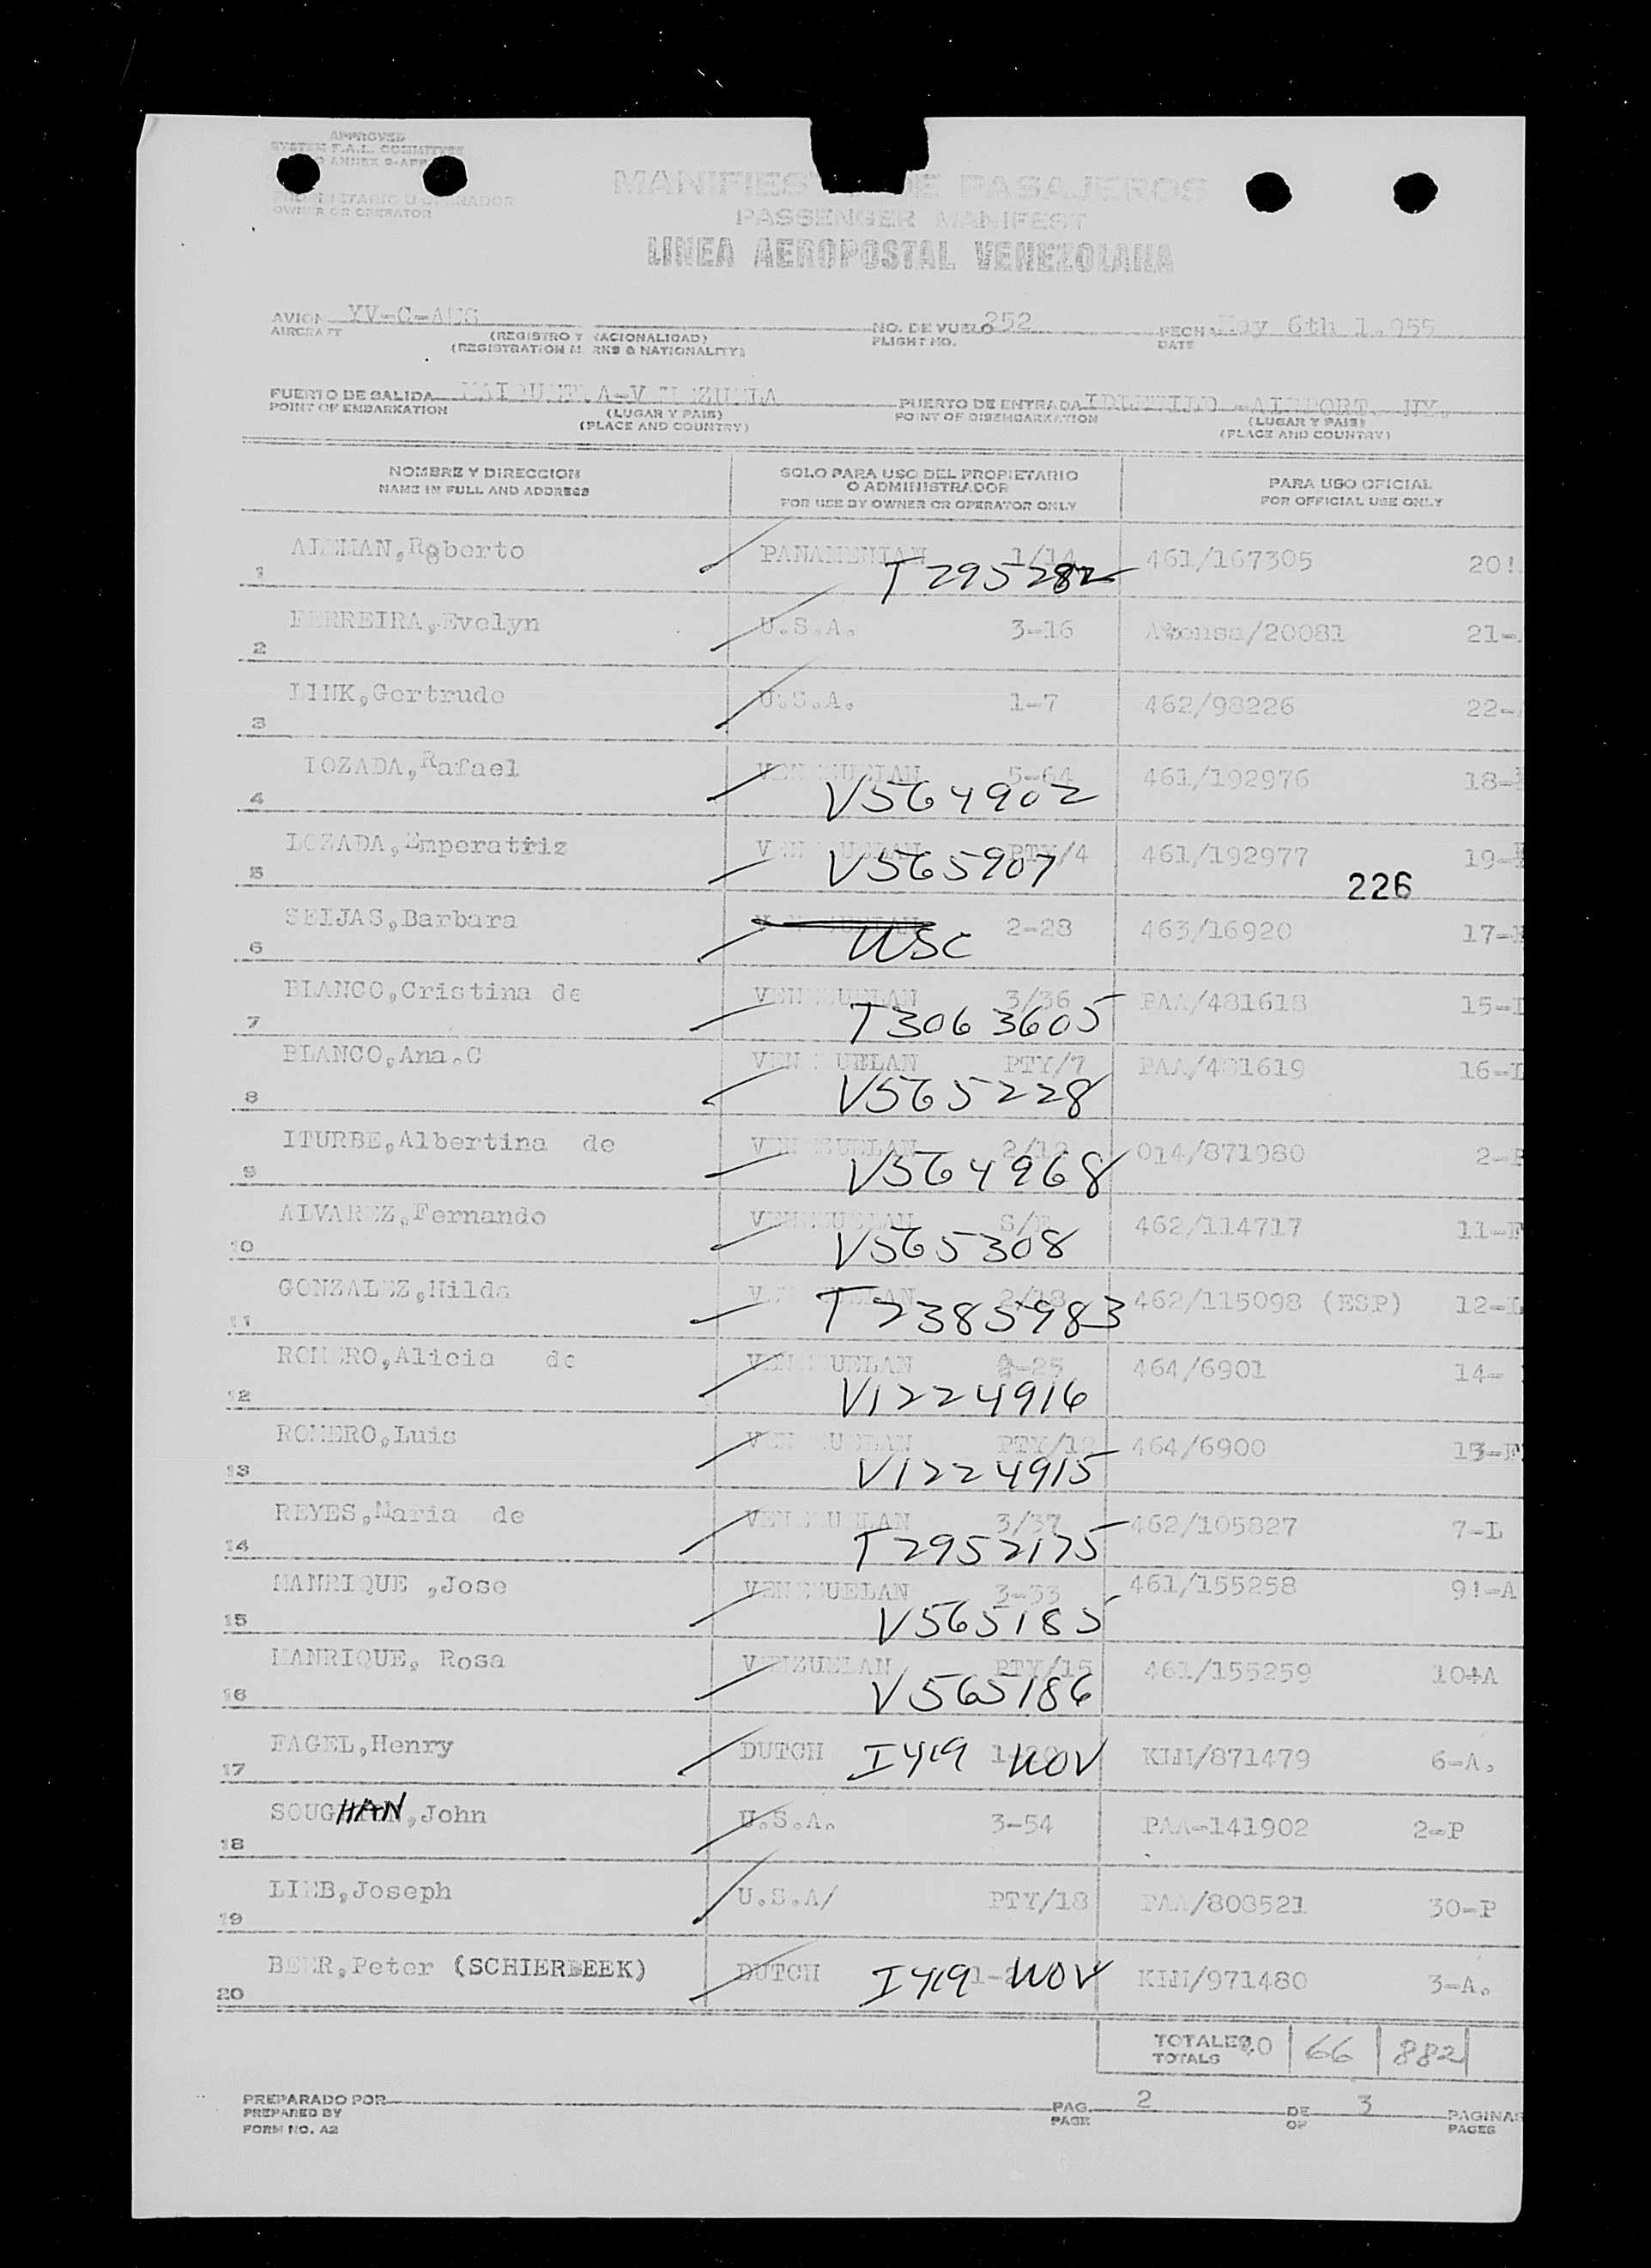 APPROVED
SYSTEM F.A.L. COMMITTEE
ANNEX 9-APP
PROPIETARIO U OPERADOR
OWNER OR OPERATOR
MANIFIES DE PASAJEROS
PASSENGER MANIFEST
LINEA AEROPOSTAL VENEZOLANA
AVION YV-C- NO. DE VUELO 252 FECHA May 6th 1.955
AIRCRAFT (REGISTRO Y NACIONALIDAD) FLIGHT NO. DATE
(REGISTRATION MARKS & NATIONALITY)
PUERTO DE SALIDA MAIQUETIA-VENEZUELA PUERTO DE ENTRADA IDLEWILD -AIRPORT. NY.
POINT OF EMBARKATION (LUGAR Y PAIS) POINT OF DISEMBARKATION (LUGAR Y PAIS)
(PLACE AND COUNTRY) (PLACE AND COUNTRY)
NOMBRE Y DIRECCION SOLO PARA USO DEL PROPIETARIO O ADMINISTRADOR PARA USO OFICIAL
NAME IN FULL AND ADDRESS FOR USE BY OWNER OR OPERATOR ONLY FOR OFFICIAL USE ONLY
1 ALEMAN,Roberto PANAMENIAN 1/14 461/167305 20!
T295282
2 FERREIRA,Evelyn U.S.A. 3-16 20081 21-
3 LINK,Gertrude U.S.A. 1-7 462/98226 22-
4 LOZADA,Rafael VENEZUELAN 5-64 461/192976 18-
V564902
5 LOZADA,Emperatriz VENEZUELAN PTY/4 461/192977 19-
V565907
226
6 SEIJAS,Barbara VENEZUELAN 2-28 463/16920 17-
USC
7 BLANCO,Cristina de VENEZUELAN 3/36 PAA/481618 15-L
T3063605
8 BLANCO,Ana.C VENEZUELAN PTY/7 PAA/481619 16-L
V565228
9 ITURBE,Albertina de VENEZUELAN 2/12 014/871980 2-P
V564968
10 ALVAREZ,Fernando VENEZUELAN 462/114717 11-F
V565308
11 GONZALEZ,Hilda VENEZUELAN 2/18 462/115098 (ESP) 12-L
T2385983
12 ROMERO,Alicia de VENEZUELAN 2-25 464/6901 14-
V1224916
13 ROMERO,Luis VENEZUELAN PTY/12 464/6900 13-F
V1224915
14 REYES,Maria de VENEZUELAN 3/37 462/105827 7-L
T2952175
15 MANRIQUE ,Jose VENEZUELAN 3-33 461/155258 9!-A
V565185
16 MANRIQUE, Rosa VENZUELAN PTY/15 461/155259 10-A
V565186
17 FAGEL,Henry DUTCH I419 NOV KLM/871479 6-A.
18 SOUGHAN,John U.S.A. 3-54 PAA-141902 2-P
19 LIEB,Joseph U.S.A/ PTY/18 PAA/808521 30-P
20 BEER,Peter (SCHIERBEEK) DUTCH I419 NOV KLM/971480 3-A.
TOTALES 20 66 882
TOTALS
PREPARADO POR PAG. 2 DE 3 PAGINAS
PREPARED BY PAGE OF PAGES
FORM NO. A2